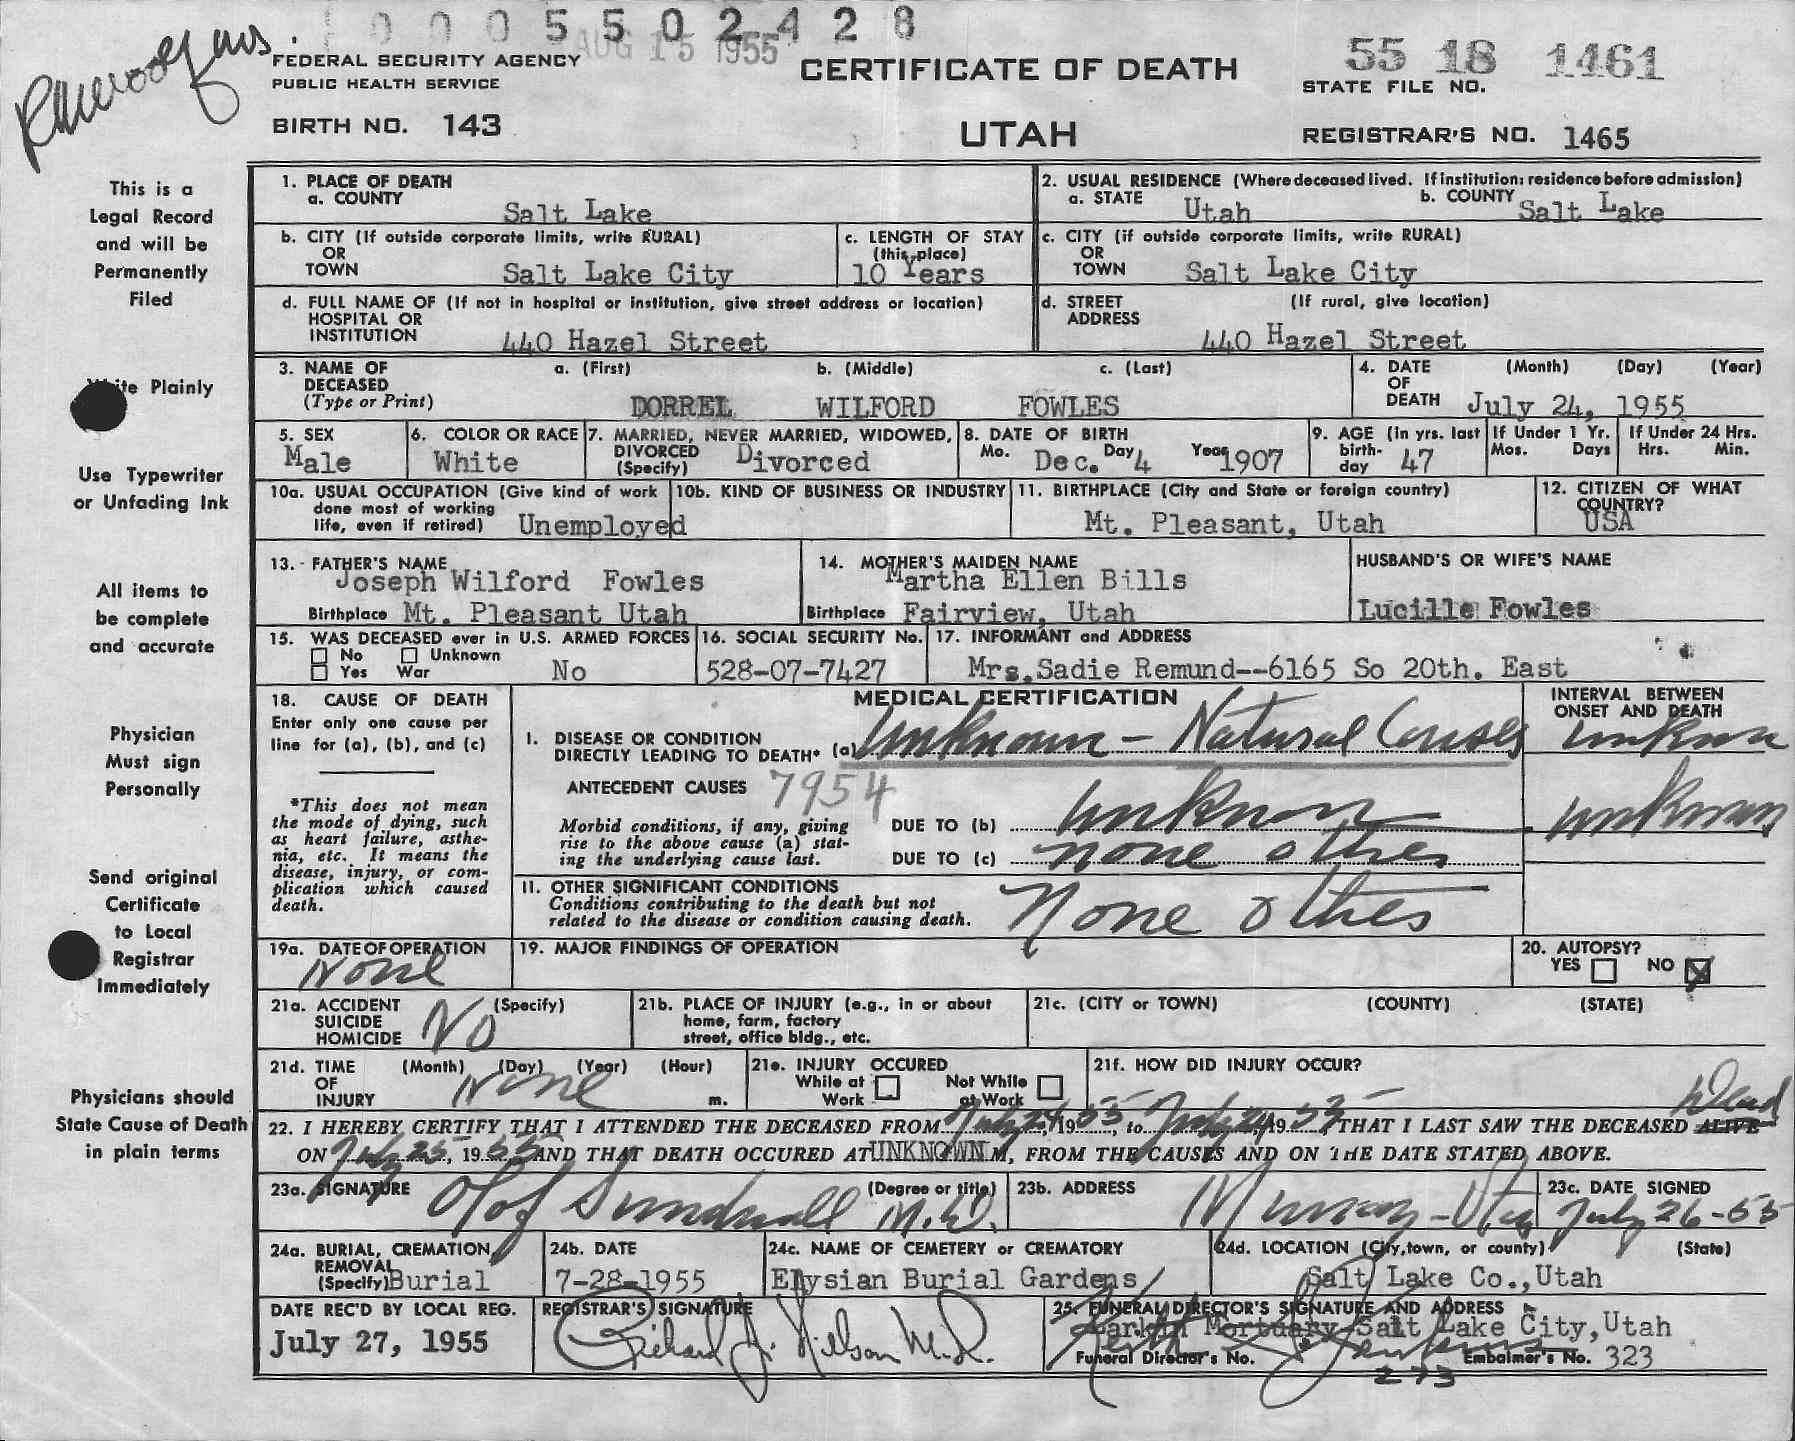 0 0 0 5 5 0 2 4 2 8
AUG 15 1955
FEDERAL SECURITY AGENCY
PUBLIC HEALTH SERVICE
CERTIFICATE OF DEATH
55 18 1461
STATE FILE NO.
BIRTH NO. 143
UTAH
REGISTRAR'S NO. 1465
This is a
Legal Record
and will be
Permanently
Filed
1. PLACE OF DEATH
a. COUNTY
Salt Lake
2. USUAL RESIDENCE (Where deceased lived. If institution: residence before admission)
a. STATE Utah b. COUNTY Salt Lake
b. CITY (If outside corporate limits, write RURAL)
OR
TOWN Salt Lake City
c. LENGTH OF STAY
(this place)
10 Years
c. CITY (if outside corporate limits, write RURAL)
OR
TOWN Salt Lake City
d. FULL NAME OF (If not in hospital or institution, give street address or location)
HOSPITAL OR
INSTITUTION 440 Hazel Street
d. STREET (If rural, give location)
ADDRESS
440 Hazel Street
Write Plainly
3. NAME OF a. (First) b. (Middle) c. (Last)
DECEASED
(Type or Print) DORREL WILFORD FOWLES
4. DATE (Month) (Day) (Year)
OF
DEATH July 24, 1955
Use Typewriter
or Unfading Ink
5. SEX
Male
6. COLOR OR RACE
White
7. MARRIED, NEVER MARRIED, WIDOWED,
DIVORCED
(Specify) Divorced
8. DATE OF BIRTH
Mo. Dec. Day 4 Year 1907
9. AGE (In yrs. last
birth-
day 47
If Under 1 Yr.
Mos. Days
If Under 24 Hrs.
Hrs. Min.
10a. USUAL OCCUPATION (Give kind of work
done most of working
life, even if retired) Unemployed
10b. KIND OF BUSINESS OR INDUSTRY
11. BIRTHPLACE (City and State or foreign country)
Mt. Pleasant, Utah
12. CITIZEN OF WHAT
COUNTRY?
USA
All items to
be complete
and accurate
13. FATHER'S NAME
Joseph Wilford Fowles
Birthplace Mt. Pleasant Utah
14. MOTHER'S MAIDEN NAME
Martha Ellen Bills
Birthplace Fairview, Utah
HUSBAND'S OR WIFE'S NAME
Lucille Fowles
15. WAS DECEASED ever in U.S. ARMED FORCES
No Unknown
Yes War No
16. SOCIAL SECURITY No.
528-07-7427
17. INFORMANT and ADDRESS
Mrs.Sadie Remund--6165 So 20th. East
Physician
Must sign
Personally
18. CAUSE OF DEATH
Enter only one cause per
line for (a), (b), and (c)
*This does not mean
the mode of dying, such
as heart failure, asthe-
nia, etc. It means the
disease, injury, or com-
plication which caused
death.
MEDICAL CERTIFICATION
INTERVAL BETWEEN
ONSET AND DEATH
I. DISEASE OR CONDITION
DIRECTLY LEADING TO DEATH* (a) Unknown - Natural Causes unknown
ANTECEDENT CAUSES 7954
Morbid conditions, if any, giving
rise to the above cause (a) stat-
ing the underlying cause last.
DUE TO (b) unknown unknown
DUE TO (c) none other
II. OTHER SIGNIFICANT CONDITIONS
Conditions contributing to the death but not
related to the disease or condition causing death.
None other
Send original
Certificate
to Local
Registrar
Immediately
19a. DATE OF OPERATION
None
19. MAJOR FINDINGS OF OPERATION
20. AUTOPSY?
YES NO X
21a. ACCIDENT (Specify)
SUICIDE
HOMICIDE No
21b. PLACE OF INJURY (e.g., in or about
home, farm, factory
street, office bldg., etc.
21c. (CITY or TOWN) (COUNTY) (STATE)
21d. TIME (Month) (Day) (Year) (Hour)
OF
INJURY None m.
21e. INJURY OCCURED
While at Work Not While at Work
21f. HOW DID INJURY OCCUR?
Physicians should
State Cause of Death
in plain terms
Dead
22. I HEREBY CERTIFY THAT I ATTENDED THE DECEASED FROM July 24, 1955, to July 24, 1955, THAT I LAST SAW THE DECEASED ALIVE
ON July 25, 1955 AND THAT DEATH OCCURED AT UNKNOWN M, FROM THE CAUSES AND ON THE DATE STATED ABOVE.
23a. SIGNATURE (Degree or title)
Olof Sundwall M.D.
23b. ADDRESS
Murray - Utah
23c. DATE SIGNED
July 26-55
24a. BURIAL, CREMATION,
REMOVAL
(Specify) Burial
24b. DATE
7-28-1955
24c. NAME OF CEMETERY or CREMATORY
Elysian Burial Gardens
24d. LOCATION (City, town, or county) (State)
Salt Lake Co.,Utah
DATE REC'D BY LOCAL REG.
July 27, 1955
REGISTRAR'S SIGNATURE
Richard J. Nelson M.D.
25. FUNERAL DIRECTOR'S SIGNATURE AND ADDRESS
Larkin Mortuary-Salt Lake City,Utah
Funeral Director's No. 273 Embalmer's No. 323